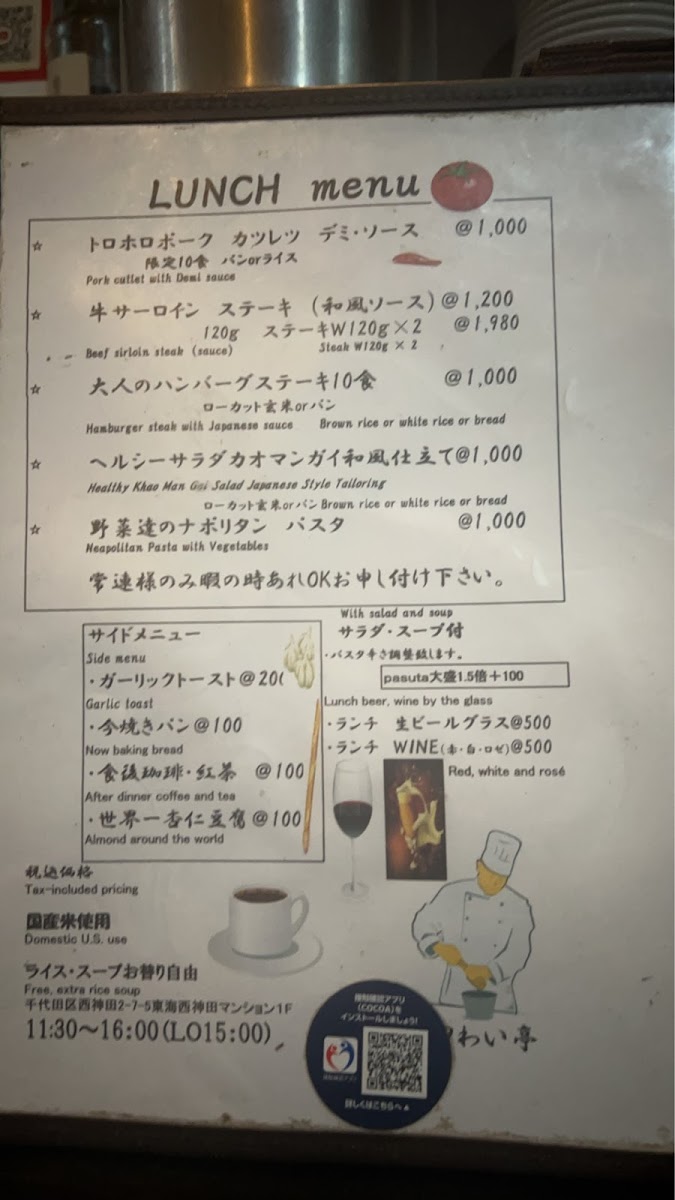 LUNCH menu
☆ トロホロポーク カツレツ デミ・ソース @1,000
限定10食 パンorライス
Pork cutlet with Demi sauce
☆ 牛サーロイン ステーキ (和風ソース)@1,200
120g ステーキW120g×2 @1,980
Beef sirloin steak (sauce) Steak W120g × 2
☆ 大人のハンバーグステーキ10食 @1,000
ローカット玄米orパン
Hamburger steak with Japanese sauce Brown rice or white rice or bread
☆ ヘルシーサラダカオマンガイ和風仕立て@1,000
Healthy Khao Man Gai Salad Japanese Style Tailoring
ローカット玄米orパン Brown rice or white rice or bread
☆ 野菜達のナポリタン パスタ @1,000
Neapolitan Pasta with Vegetables
常連様のみ暇の時あれOKお申し付け下さい。
With salad and soup
サラダ・スープ付
・パスタ辛さ調整致します。
pasuta大盛1.5倍+100
サイドメニュー
Side menu
・ガーリックトースト@20
Garlic toast
・今焼きパン@100
Now baking bread
・食後珈琲・紅茶 @100
After dinner coffee and tea
・世界一杏仁豆腐@100
Almond around the world
Lunch beer, wine by the glass
・ランチ 生ビールグラス@500
・ランチ WINE(赤・白・ロゼ)@500
Red, white and rosé
税込価格
Tax-included pricing
国産米使用
Domestic U.S. use
ライス・スープお替り自由
Free, extra rice soup
千代田区西神田2-7-5東海西神田マンション1F
11:30~16:00(LO15:00)
わい亭
接触確認アプリ
(COCOA)を
インストールしましょう!
詳しくはこちらへ▲